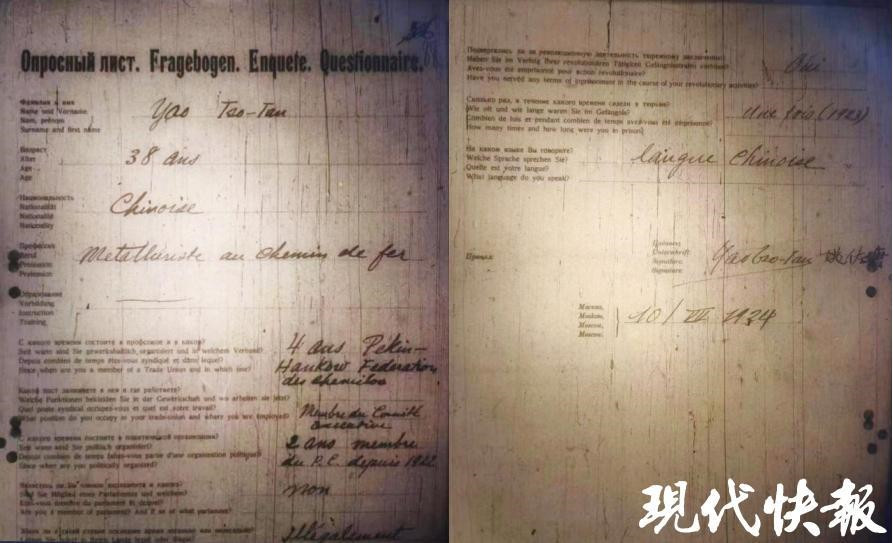 Опросный лист. Fragebogen. Enquete. Questionnaire.
Фамилия и имя
Name und Vorname
Nom, prénom
Surname and first name
Yao Tso-Tan
Возраст
Alter
Age
Age
38 ans
Национальность
Nationalität
Nationalité
Nationality
Chinoise
Профессия
Beruf
Profession
Profession
Metalluriste au chemin de fer
Образование
Vorbildung
Instruction
Training
С какого времени состоите в профсоюзе и в каком?
Seit wann sind Sie gewerkschaftlich organisiert und in welchem Verband?
Depuis combien de temps êtes-vous syndiqué et dans lequel?
Since when are you a member of a Trade Union and in which one?
4 ans Pekin-
Hankow Federation
des cheminos
Какой пост занимаете в нем и где работаете?
Welche Funktionen bekleiden Sie in der Gewerkschaft und wo arbeiten sie jetzt?
Quel poste syndical occupez-vous et quel est votre travail?
What position do you occupy in your trade-union and where you are employed?
Membre du Comité
executive
С какого времени состоите в политической организации?
Seit wann sind Sie politisch organisiert?
Depuis combien de temps faites-vous partie d'une organisation politique?
Since when are you politically organized?
2 ans membre
du P.C. depuis 1922
Являетесь ли Вы членом парламента и какого?
Sind Sie Mitglied eines Parlamentes und welchem?
Etes-vous membre du parlement et duquel?
Are you a member of parliament? And if so of what parliament?
non
Illégalement
Подвергались ли за революционную деятельность тюремному заключению?
Haben Sie im Verfolg Ihrer revolutionären Tätigkeit Gefängnisstrafen verbüsst?
Avez-vous été emprisonné pour action revolutionnaire?
Have you served any terms of inprisonment in the course of your revolutionary activities?
Oui
Сколько раз, в течение какого времени сидели в тюрьме?
Wie oft und wie lange waren Sie im Gefängnis?
Combien de fois et pendant combien de temps avez-vous été emprisonné?
How many times and how long were you in prison?
Une fois (1923)
На каком языке Вы говорите?
Welche Sprache sprechen Sie?
Quelle est votre langue?
What language do you speak?
langue chinoise
Подпись:
Unterschrift:
Signature:
Signature:
Yao Tso-Tan
Москва,
Moskau,
Moscou,
Moscow,
10/VII 1924
現代快報